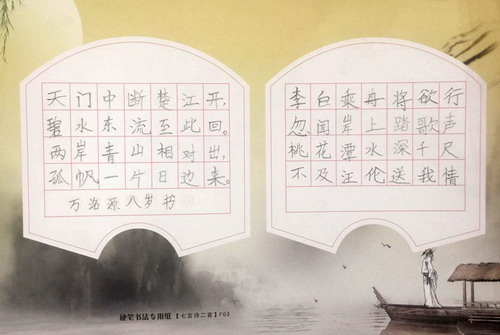 天门中断楚江开，
碧水东流至此回。
两岸青山相对出，
孤帆一片日边来。
万洺源八岁书
李白乘舟将欲行
忽闻岸上踏歌声
桃花潭水深千尺
不及汪伦送我情
硬笔书法专用纸【七言诗二首】F03